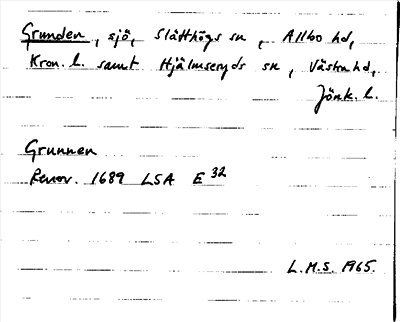 Grunden, sjö, Slätthögs sn, Allbo hd,
Kron. l. samt Hjälmseryds sn, Västra hd,
Jönk. l.
Grunnen
Renov. 1689 LSA E 32
L.M.S. 1965.